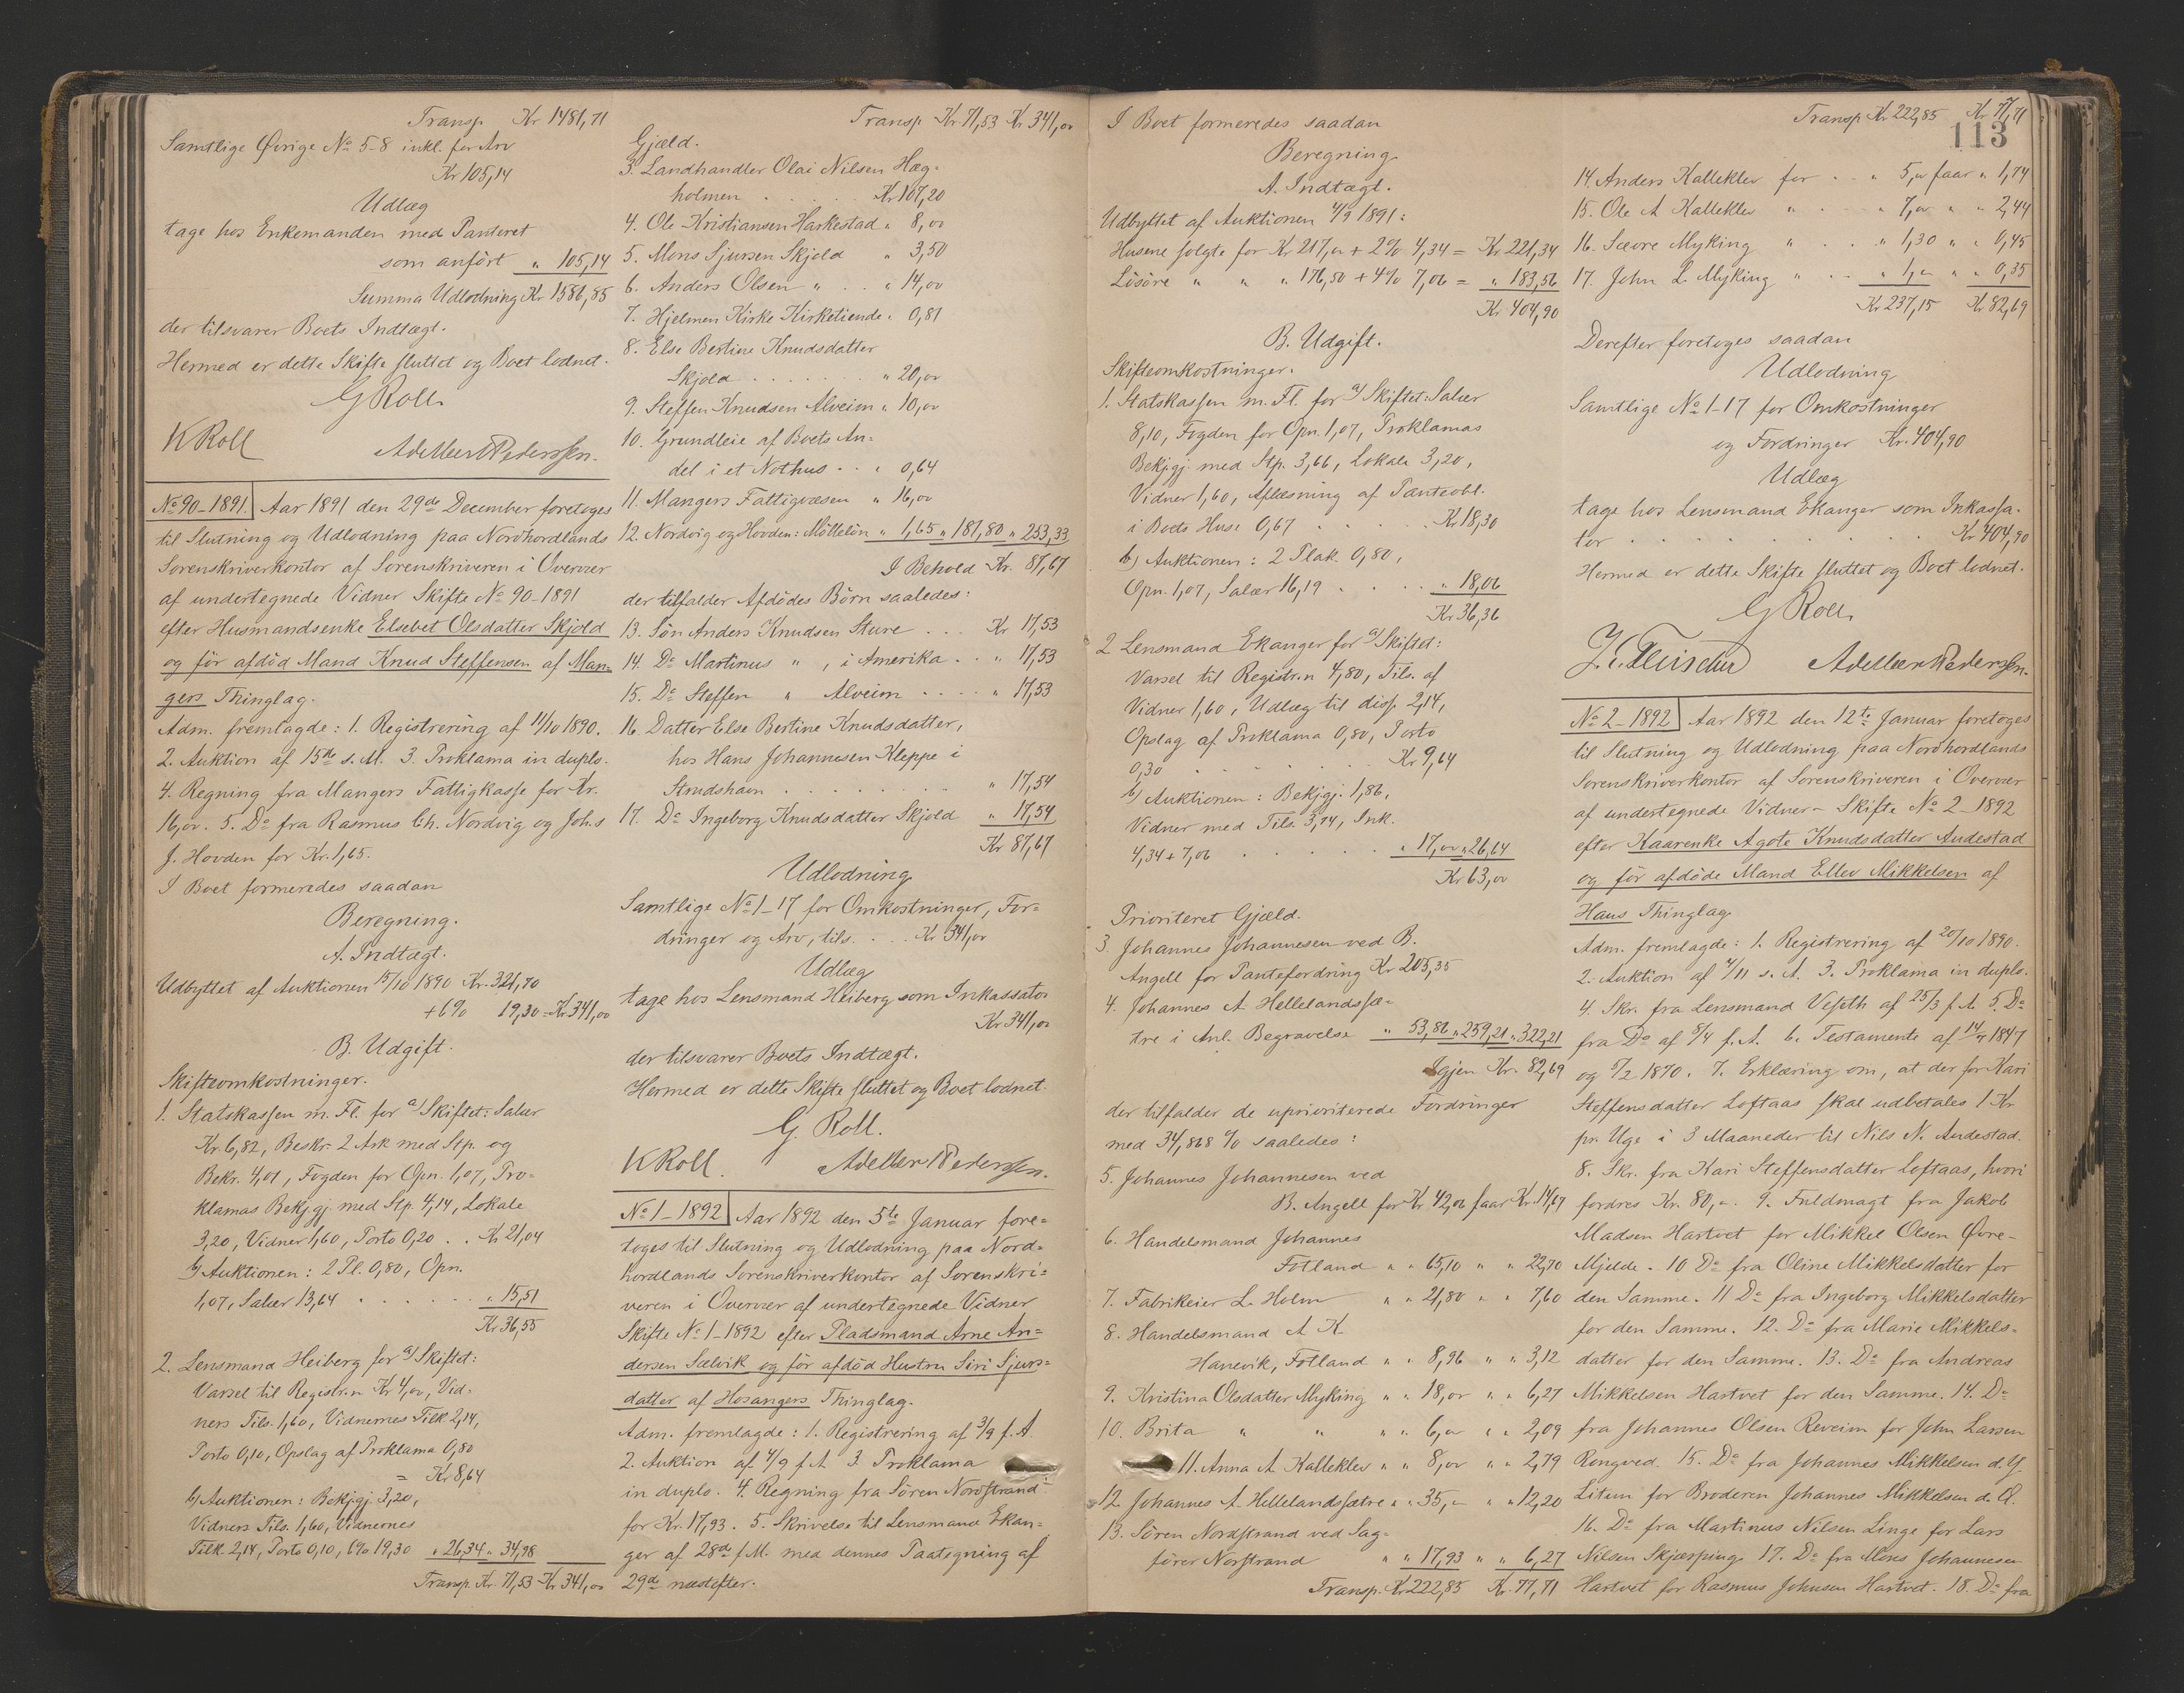 Transp. Kr 1481,71
Samtlige Øvrige No 5-8 inkl. for Arv
Kr 105,14
Udlæg
tage hos Enkemanden med Panteret
som anført " 105,14
Summa Udlodning Kr 1586,85
der tilsvarer Boets Indtægt.
Hermed er dette Skifte sluttet og Boet lodnet.
G Roll.
K Roll
Adelbert Pederssen.
No 90-1891. Aar 1891 den 29de December foretoges
til Slutning og Udlodning paa Nordhordlands
Sorenskriverkontor af Sorenskriveren i Overvær
af undertegnede Vidner Skifte No 90-1891
efter Husmandsenke Elsebet Olsdatter Skjold
og før afdød Mand Knud Steffensen af Man=
gers Thinglag.
Adm. fremlagde: 1. Registrering af 11/10 1890.
2. Auktion af 15de s. M. 3. Proklama in duplo.
4. Regning fra Mangers Fattigkasse for Kr.
16,00. 5. Do fra Rasmus Ch. Nordvig og Johs
J. Hovden for Kr. 1,65.
I Boet formeredes saadan
Beregning.
A. Indtægt.
Udbyttet af Auktionen 15/10 1890 Kr. 321,70
+6% 19,30 = Kr 341,00
B. Udgift.
Skifteomkostninger.
1. Statskassen m. Fl. for a) Skiftet: Salær
Kr. 6,82, Beskr. 2 Ark med Stp. og
Bekr. 4,01, Fogden for Opn. 1,07, Pro=
klamas Bekjgj. med Stp. 4,14, Lokale
3,20, Vidner 1,60, Porto 0,20 . . Kr 21,04
b) Auktionen: 2 Pl. 0,80, Opn.
1,07, Salær 13,64 . . . . . " 15,51
Kr 36,55
2. Lensmand Heiberg for a) Skiftet:
Varsel til Registr.n Kr 4,00, Vid=
ners Tils. 1,60, Vidnernes Tilk 2,14,
Porto 0,10, Opslag af Proklama 0,80
= Kr 8,64
b) Auktionen: Bekjgj. 3,20,
Vidners Tils. 1,60, Vidnernes
Tilk. 2,14, Porto 0,10, 6% 19,30 " 26,34 " 34,98
Transp. Kr. 71,53 Kr 341,00
Transp Kr 71,53 Kr 341,00
Gjæld.
3. Landhandler Olai Nilsen Hæg=
holmen . . . . . Kr 107,20
4. Ole Kristiansen Harkestad " 8,00
5. Mons Sjursen Skjold " 3,50
6. Anders Olsen " . . " 14,00
7. Hjelmen Kirke Kirketiende " 0,81
8. Else Bertine Knudsdatter
Skjold . . . . . . . " 20,00
9. Steffen Knudsen Alveim " 10,00
10. Grundleie af Boets An=
del i et Nothus . . " 0,64
11. Mangers Fattigvæsen " 16,00
12. Nordvig og Hovden: Møllelön " 1,65 " 181,80 " 253,33
I Behold Kr. 87,67
der tilfalder Afdødes Børn saaledes:
13. Søn Anders Knudsen Sture . . . Kr 17,53
14. Do Martinus " , i Amerika . . " 17,53
15. Do Steffen " Alveim . . . . " 17,53
16. Datter Else Bertine Knudsdatter,
hos Hans Johannesen Kleppe i
Strudshavn . . . . . . . . " 17,54
17. Do Ingeborg Knudsdatter Skjold " 17,54
Kr 87,67
Udlodning
Samtlige No 1-17 for Omkostninger, For=
dringer og Arv, tils. . . . Kr 341,00
Udlæg
tage hos Lensmand Heiberg som Inkassator
Kr 341,00
der tilsvarer Boets Indtægt.
Hermed er dette Skifte sluttet og Boet lodnet.
G. Roll.
K Roll.
Adelbert Pederssen.
No 1-1892 Aar 1892 den 5te Januar fore=
toges til Slutning og Udlodning paa Nord=
hordlands Sorenskriverkontor af Sorenskri=
veren i Overvær af undertegnede Vidner
Skifte No 1-1892 efter Pladsmand Arne An=
dersen Sælvik og før afdød Hustru Siri Sjurs=
datter af Hosangers Thinglag.
Adm. fremlagde: 1. Registrering af 3/9 f. A.
2. Auktion af 4/9 f. A 3. Proklama
in duplo. 4. Regning fra Søren Nordstrand
for Kr. 17,93. 5. Skrivelse til Lensmand Ekan=
ger af 28de f. M. med dennes Paategning af
29de næstefter.
I Boet formeredes saadan
Beregning.
A. Indtægt.
Udbyttet af Auktionen 4/9 1891:
Husene solgte for Kr 217,00 + 2% 4,34 = Kr 221,34
Løsøre " " " 176,50 + 4% 7,06 = " 183,56
Kr 404,90
B. Udgift.
Skifteomkostninger.
1. Statskassen m. Fl. for a) Skiftet: Salær
8,10, Fogden for Opn. 1,07, Proklamas
Bekjgj. med Stp. 3,66, Lokale 3,20,
Vidner 1,60, Aflæsning af Panteobl.
i Boets Huse 0,67 . . . . . Kr 18,30
b) Auktionen: 2 Plak. 0,80,
Opn. 1,07, Salær 16,19 . . . . " 18,06
Kr 36,36
2 Lensmand Ekanger for a) Skiftet:
Varsel til Registr.n 4,80, Tils. af
Vidner 1,60, Udlæg til disse 2,14,
Opslag af Proklama 0,80, Porto
0,30 . . . . . . . Kr 9,64
b) Auktionen: Bekjgj. 1,86,
Vidner med Tils. 3,74, Ink.
4,34 + 7,06 . . . . . " 17,00 " 26,64
Kr 63,00
Prioriteret Gjæld.
3 Johannes Johannesen ved B.
Angell for Pantefordring Kr 205,35
4. Johannes A. Hellelandssæ=
tre i Anl. Begravelse " 53,86 " 259,21 " 322,21
Igjen Kr. 82,69
der tilfalder de uprioriterede Fordringer
med 34,868 % saaledes:
5. Johannes Johannesen ved
B. Angell for Kr 42,06 faar Kr. 14,67
6. Handelsmand Johannes
Fotland " " 65,10 " " 22,70
7. Fabrikeier L. Holm " " 21,80 " " 7,60
8. Handelsmand A K
Hanevik, Fotland " " 8,96 " " 3,12
9. Kristina Olsdatter Myking " " 18,00 " " 6,27
10. Brita " " " " 6,00 " " 2,09
11. Anna A Kalleklev " " 8,00 " " 2,79
12 Johannes A. Hellelandssætre " " 35,- " " 12,20
13. Søren Nordstrand ved Sag=
fører Norstrand " " 17,93 " " 6,27
Transp. Kr 222,85 Kr. 77,71
Transp Kr 222,85 Kr. 77,71
113
14. Anders Kalleklev for . . " 5,00 faar " 1,74
15. Ole A Kalleklev " . . . " 7,00 " " 2,44
16. Sævre Myking " . . . " 1,30 " " 0,45
17. John L. Myking " . . . " 1,00 " " 0,35
Kr 237,15 Kr 82,69
Derefter foretoges saadan
Udlodning
Samtlige No 1-17 for Omkostninger
og Fordringer Kr. 404,90
Udlæg
tage hos Lensmand Ekanger som Inkassa=
tor . . . . . . . . Kr 404,90
Hermed er dette Skifte sluttet og Boet lodnet.
G Roll.
Adelbert Pederssen.
No 2-1892 Aar 1892 den 12te Januar foretoges
til Slutning og Udlodning paa Nordhordlands
Sorenskriverkontor af Sorenskriveren i Overvær
af undertegnede Vidner - Skifte No 2-1892
efter Kaarenke Agote Knudsdatter Andestad
og før afdøde Mand Ellev Mikkelsen af
Haus Thinglag.
Adm. fremlagde: 1. Registrering af 20/10 1890.
2. Auktion af 4/11 s. A. 3. Proklama in duplo.
4. Skr. fra Lensmand Veseth af 25/3 f. A. 5. Do
fra Do af 8/4 f. A. 6. Testamente af 1847
og 1870. 7. Erklæring om, at der for Kari
Steffensdatter Loftaas skal udbetales 1 Kr.
pr. Uge i 3 Maaneder til Nils N. Andestad.
8. Skr. fra Kari Steffensdatter Loftaas, hvori
fordres Kr. 80,-. 9. Fuldmagt fra Jakob
Madsen Hartvet for Mikkel Olsen Øvre-
Mjelde. 10 Do fra Oline Mikkelsdatter for
den Samme. 11 Do fra Ingeborg Mikkelsdatter
for den Samme. 12. Do fra Marie Mikkels=
datter for den Samme. 13. Do fra Andreas
Mikkelsen Hartvet for den Samme. 14. Do
fra Johannes Olsen Reveim for John Larsen
Rongved. 15. Do fra Johannes Mikkelsen d. Y.
Litun for Broderen Johannes Mikkelsen d. Æ.
16. Do fra Martinus Nilsen Linge for Lars
Nilsen Skjærping. 17. Do fra Mons Johannesen
Hartvet for Rasmus Johnsen Hartvet. 18. Do fra